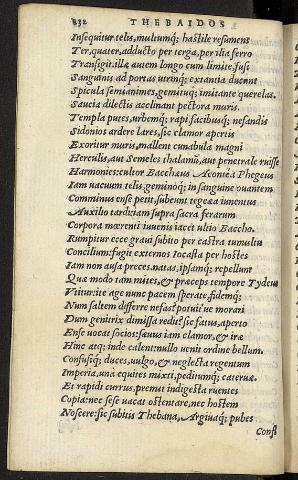 232 THEBAIDOS
Insequitur telis, multumq; hastile resumens
Ter, quater, adducto per terga, per ilia ferro
Transigit. illæ autem longo cum limite fusi
Sanguinis ad portas utrinq; extantia ducunt
Spicula semianimes, gemituq; imitante querelas.
Saucia dilectis acclinant pectora muris.
Templa putes, urbemq; rapi, facibusq; nefandis
Sidonios ardere lares, sic clamor apertis
Exoritur muris, mallent cunabula magni
Herculis, aut Semeles thalamũ, aut penetrale ruisse
Harmonies: cultor Bacchæus Phegeus
Iam uacuum telis, geminoq; in sanguine ouantem
Comminus ense petit. subeunt tegeæa iuuentus
Auxilio tardi: iam supra sacra ferarum
Corpora mœrenti iuuenis iacet ultio Baccho.
Rumpitur ecce graui subito per castra tumultu
Concilium: fugit externos Iocasta per hostes
Iam non ausa preces. natas, ipsamq; repellunt
Quæ modo tam mites, & præceps tempore Tydeus
Vtitur: ite age nunc pacem sperate, fidemq;
Num saltem differre nefas? potuit ue morari
Dum genitrix dimissa redit? sic fatus, aperto
Ense uocat socios: sæuus iam clamor, & iræ
Hinc atq; inde calent: nullo uenit ordine bellum.
Confusiq; duces, uulgo, & neglecta regentum
Imperia. unà equites mixti, peditumq; cateruæ.
Et rapidi currus, premit indigesta ruentes
Copia: nec sese uacat ostentare, nec hostem
Noscere: sic subitis Thebana, Argiuaq; pubes